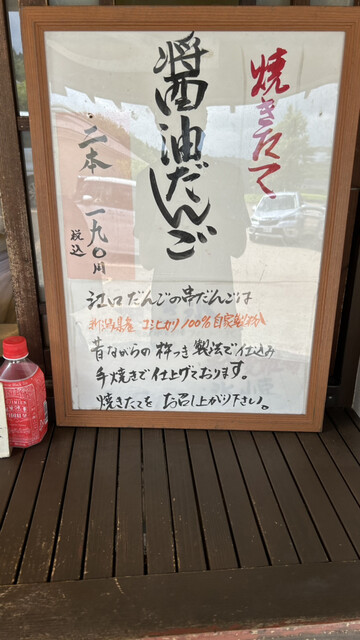 焼きたて
醤油だんご
二本 一九〇円
税込
江口だんごの串だんごは
新潟県産 コシヒカリ100%自家製粉
昔ながらの杵つき製法で仕込み
手焼きで仕上げております。
焼きたてをお召し上がり下さい。